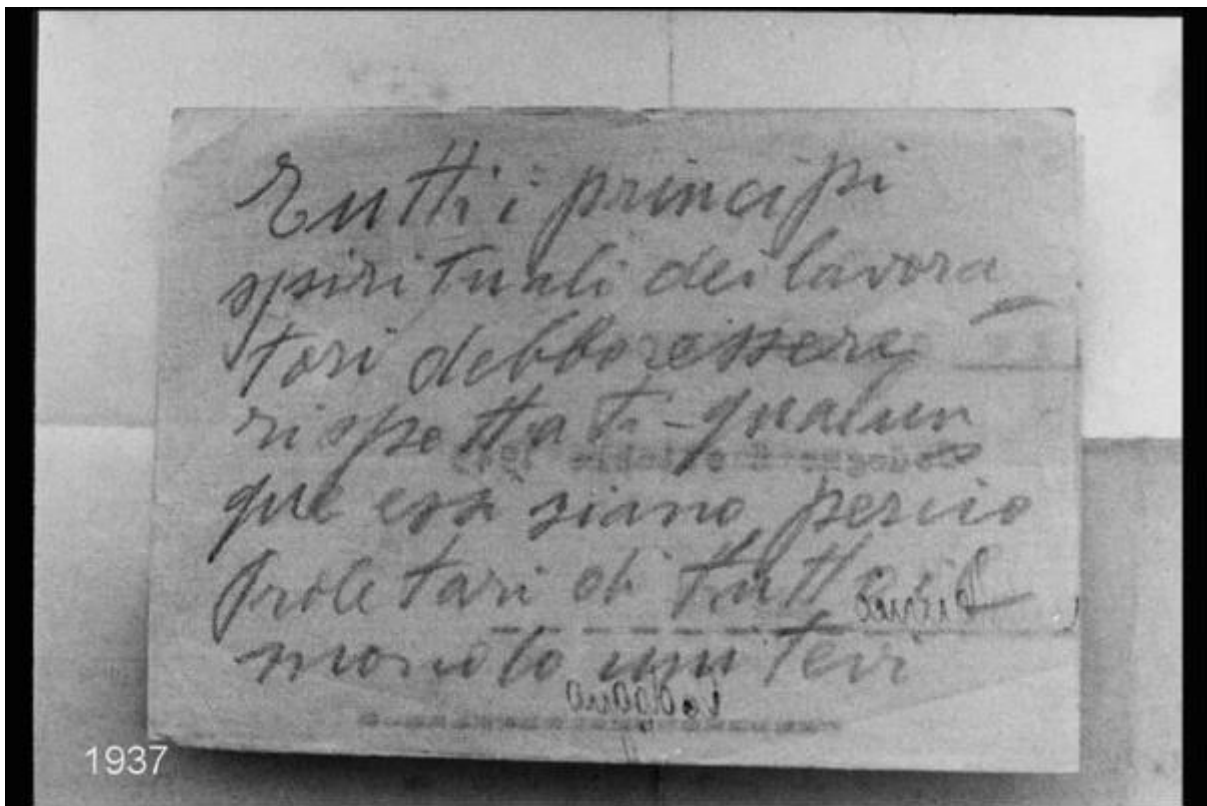 Tutti i principi
spirituali dei lavora
tori debbono essere
rispettati - qualun
que essi siano, perciò
proletari di tutto
mondo unitevi
1937